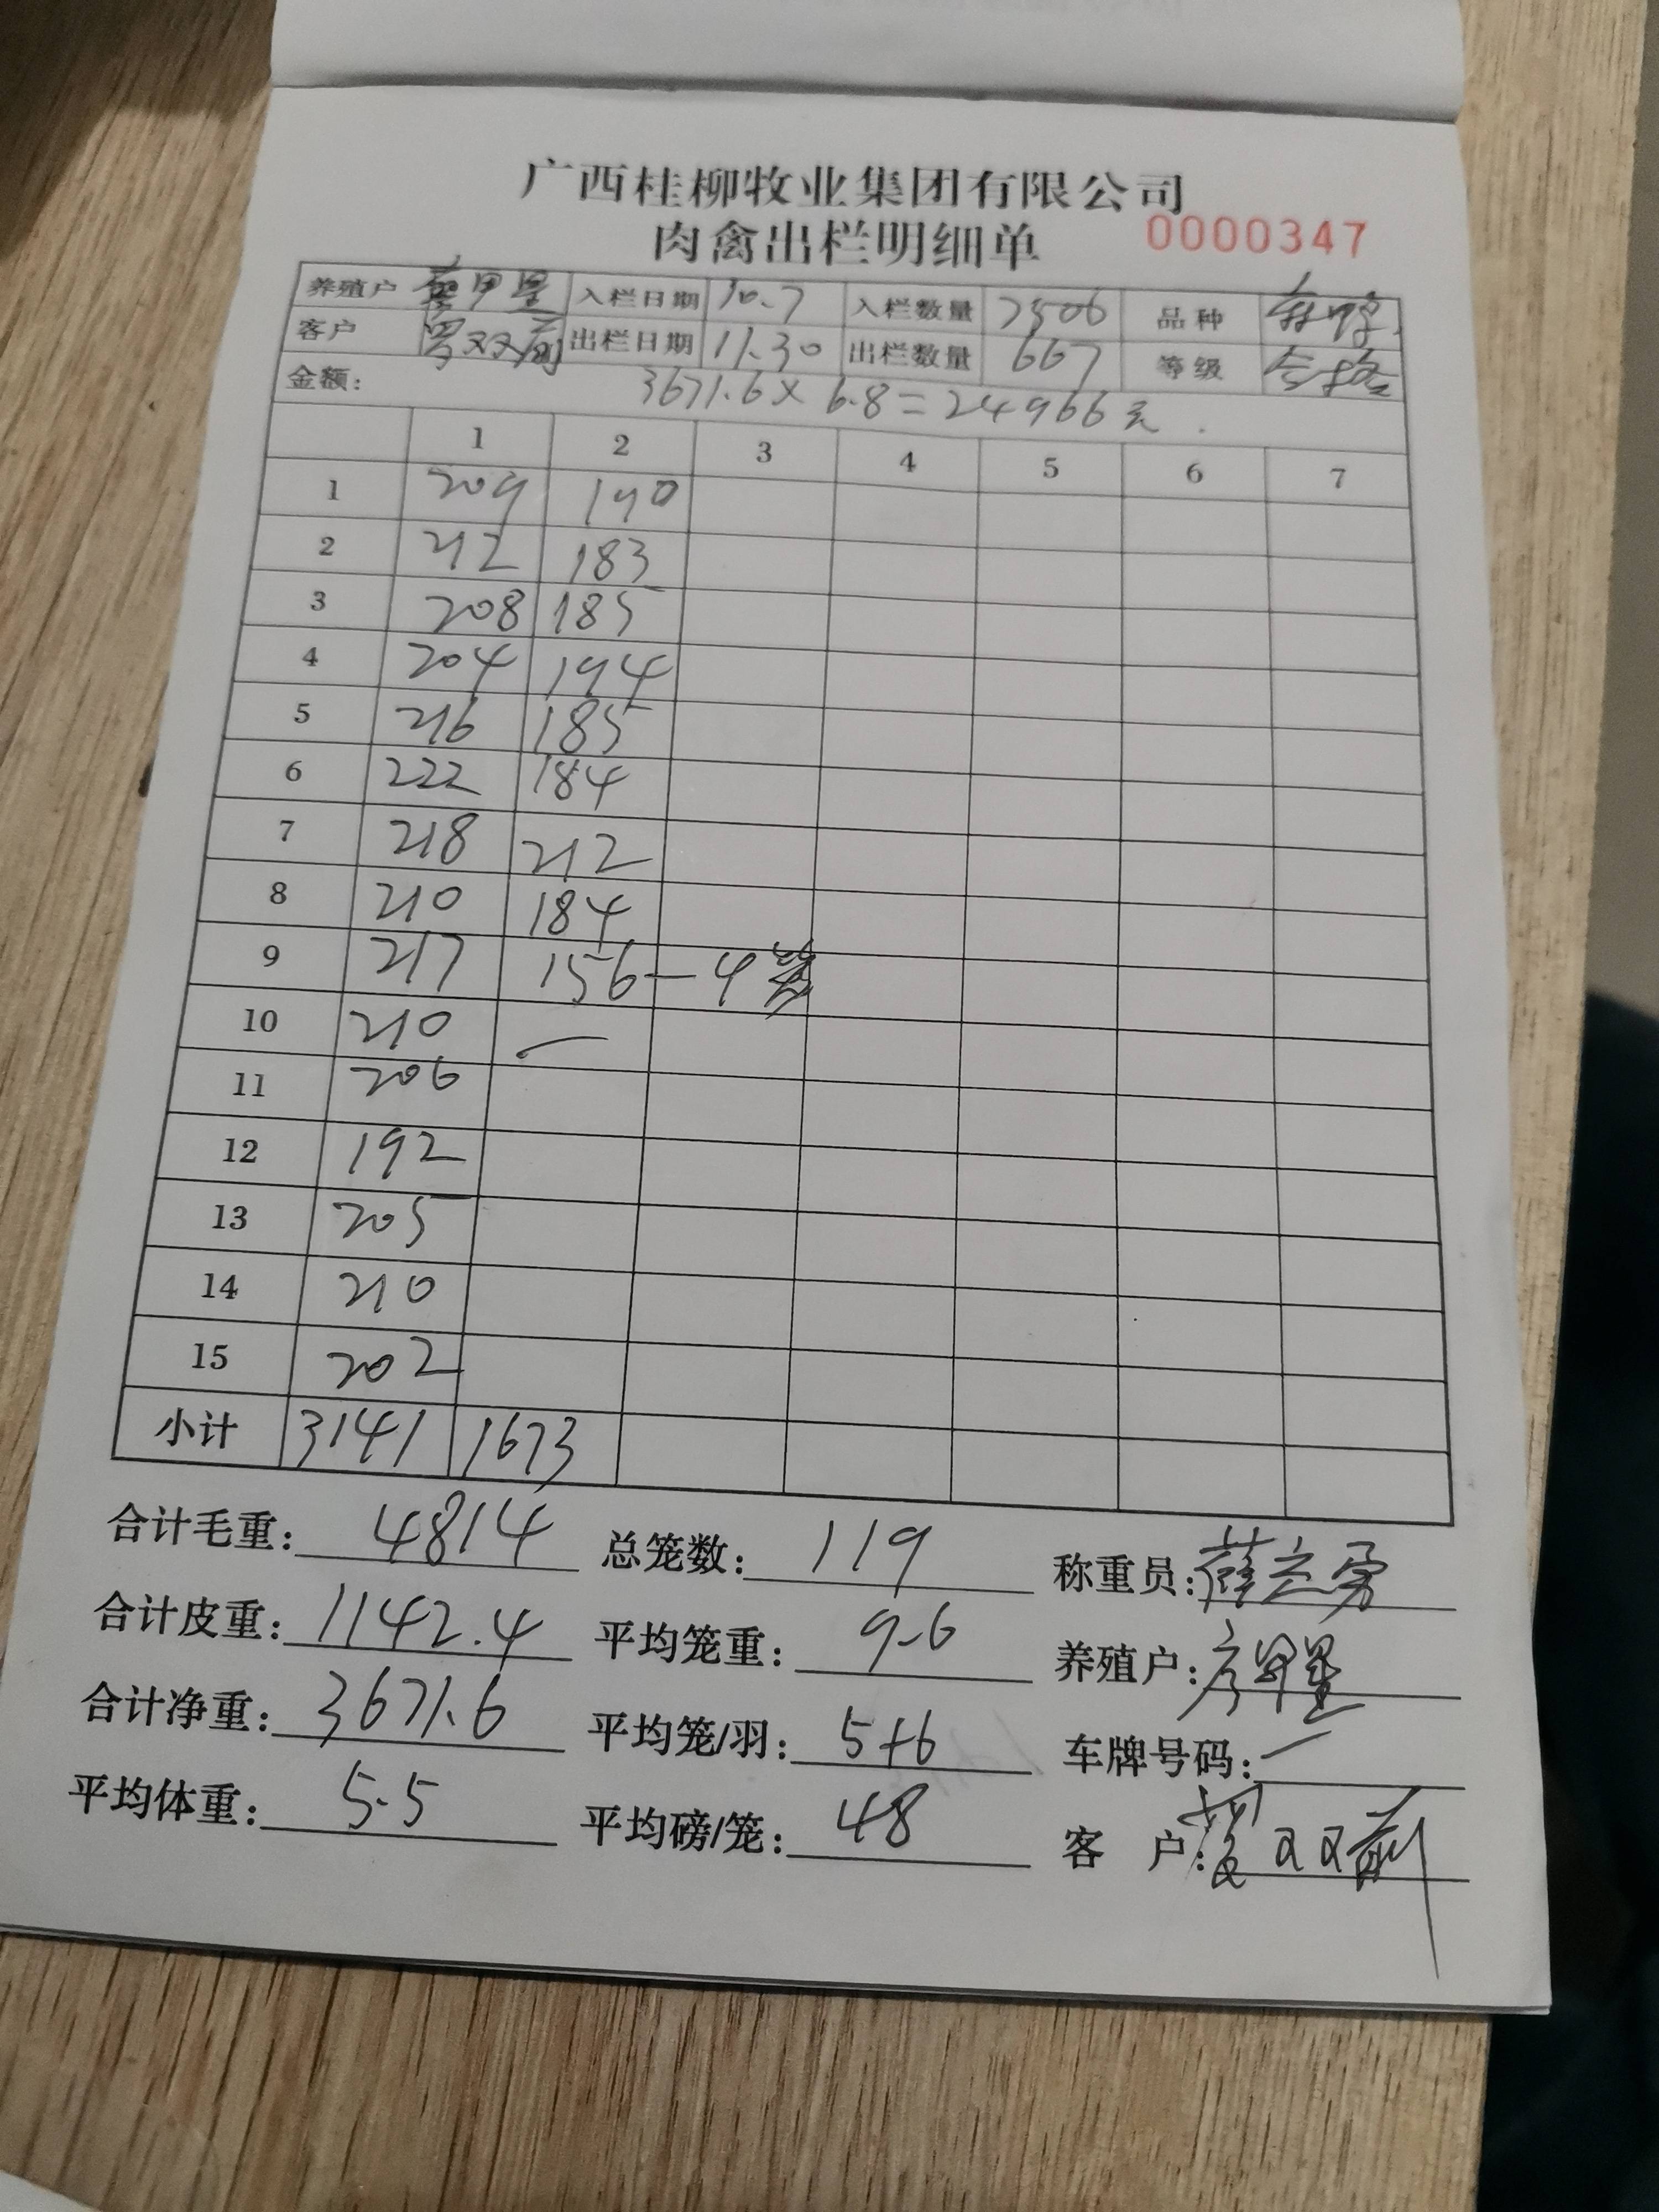 广西桂柳牧业集团有限公司
肉禽出栏明细单 0000347
养殖户 甲星 入栏日期 10.7 入栏数量 7506 品种
客户 罗双前 出栏日期 11.30 出栏数量 667 等级 合格
金额: 3671.6×6.8=24966元.
1 2 3 4 5 6 7
1 209 190
2 212 183
3 208 185
4 204 194
5 216 185
6 222 184
7 218 212
8 210 184
9 217 156—4笼
10 210 —
11 206
12 192
13 205
14 210
15 202
小计 3141 1673
合计毛重: 4814 总笼数: 119 称重员: 薛立勇
合计皮重: 1142.4 平均笼重: 9.6 养殖户:
合计净重: 3671.6 平均笼/羽: 5+6 车牌号码: —
平均体重: 5.5 平均磅/笼: 48 客户: 双双前